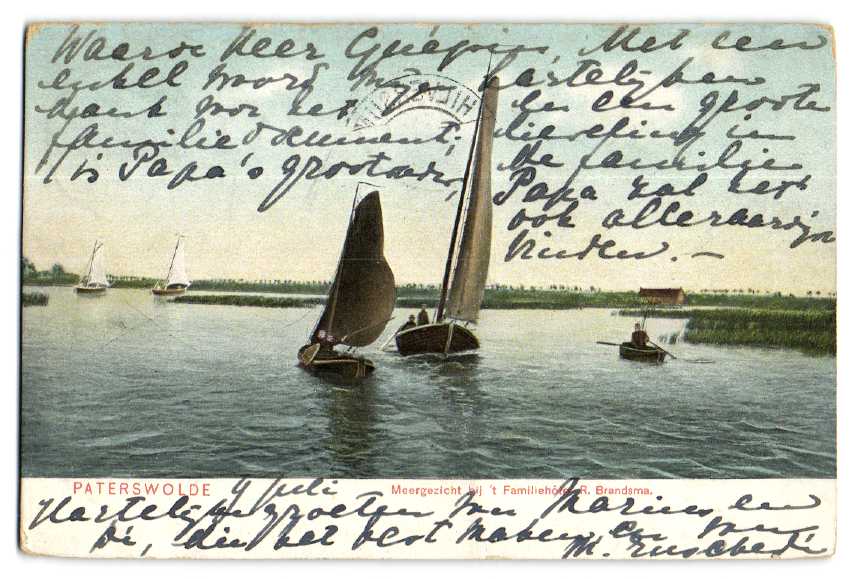 Waarde Heer Guépin, Met een
enkel woord mijn hartelijken
dank voor het
en een groote
familiedocument; lieveling in
is Papa's grootvader,
de familie
Papa zal het
ook alleraardigst
vinden. —
PATERSWOLDE
Meergezicht bij 't Familiehôtel R. Brandsma.
9 Juli
Hartelijke groeten van Marius en
die het best maken, en van
M. Enschedé